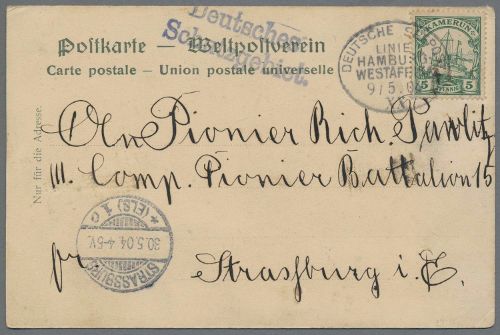 Deutsches
Schutzgebiet.
Postkarte — Weltpostverein
Carte postale - Union postale universelle
DEUTSCHE
LINIE
HAMBURG
WESTAF
9/5.04
KAMERUN
5 PFENNIG 5
Nur für die Adresse.
An Pionier Rich. Pawlitz
III. Comp. Pionier Battalion 15
Strassburg i. E.
STRASSBURG
30.5.04.4-5V.
*(ELS) 1 c